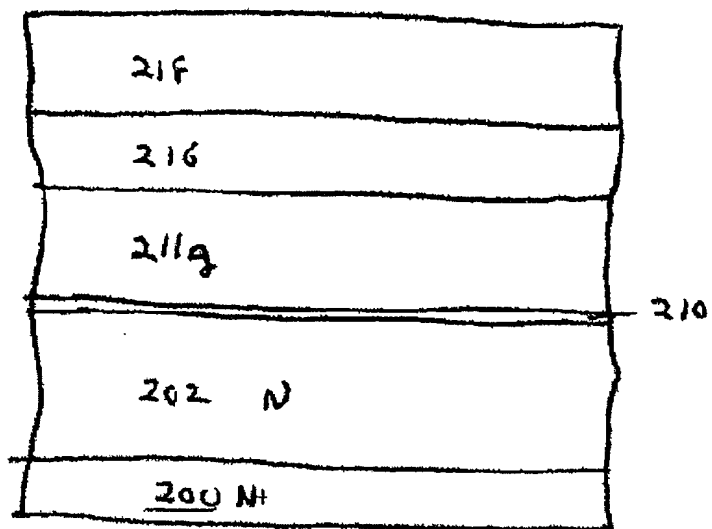 218
216
211g
210
202 N
200 N+